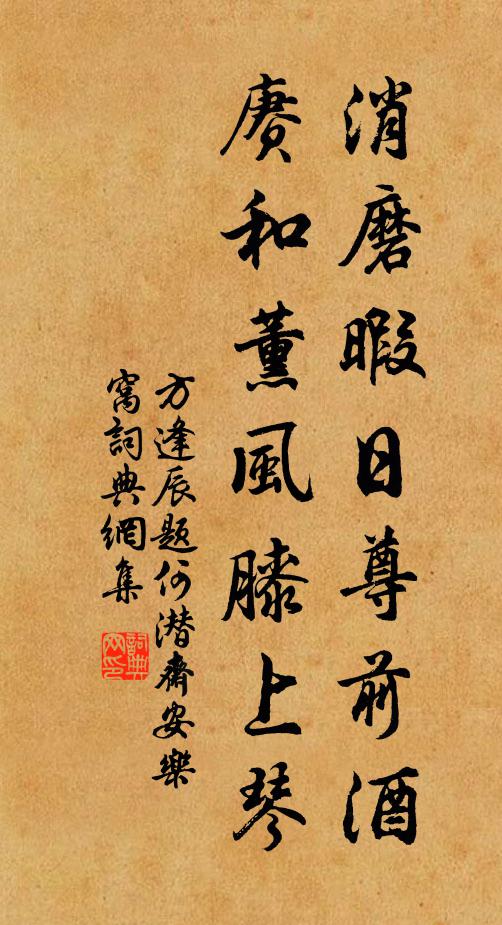 消磨暇日尊前酒
賡和薰風膝上琴
方逢辰題何潛齋安樂
窩詞典網集
詞典網印